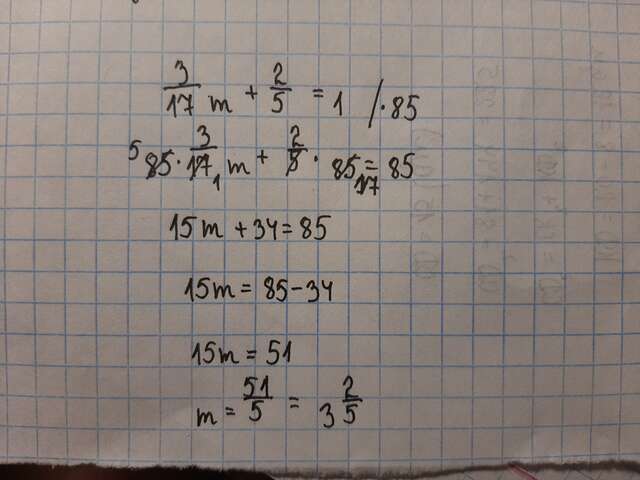 3/17 m + 2/5 = 1 /·85
5 85 · 3/17 1 m + 2/5 · 85 17 = 85
15m + 34 = 85
15m = 85 - 34
15m = 51
m = 51/5 = 3 2/5